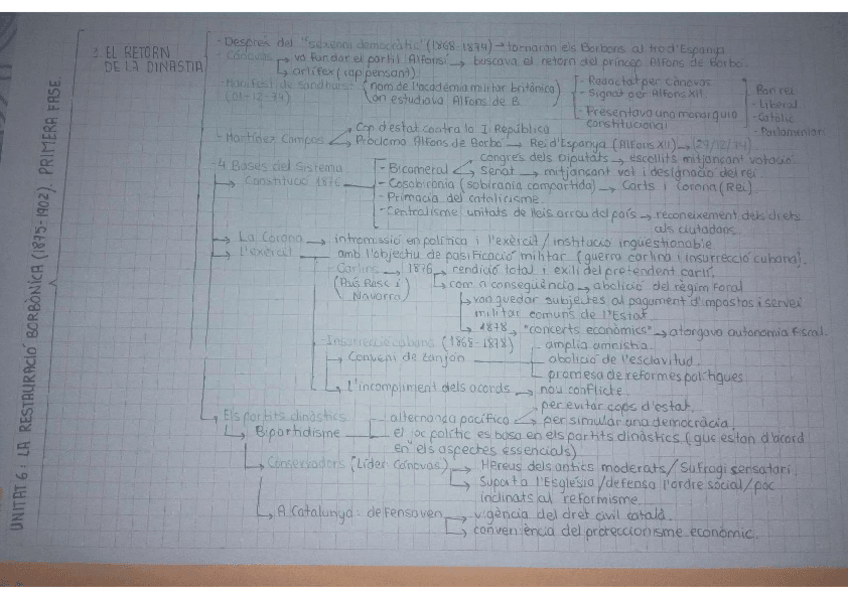 UNITAT 6: LA RESTAURACIÓ BORBÒNICA (1875-1902). PRIMERA FASE.
1. EL RETORN DE LA DINASTIA
- Després del "sexenni democràtic" (1868-1874) → tornaran els Borbons al tro d'Espanya
- Cánovas → va fundar el partit Alfonsí → buscava el retorn del príncep Alfons de Borbó.
↳ artífex (cap pensant)
- Manifest de Sandhurst (nom de l'acadèmia militar britànica
(01-12-74) on estudiava Alfons de B.)
- Redactat per Cánovas
- Signat per Alfons XII.
- Presentava una monarquia constitucional
- Bon rei
- Liberal
- Catòlic
- Parlamentari
- Martínez Campos
Cop d'estat contra la I República
Proclama Alfons de Borbó → Rei d'Espanya (Alfons XII) → (29/12/74)
- 4 Bases del Sistema
→ Constitució 1876
- Bicameral
congrés dels diputats → escollits mitjançant votació.
Senat → mitjançant vot i designació del rei.
- Cosobirania (sobirania compartida) → Corts i Corona (Rei)
- Primacia del catolicisme.
- Centralisme: unitats de lleis arreu del país → reconeixement dels drets als ciutadans.
→ La Corona → intromissió en política i l'exèrcit / institució inqüestionable
→ L'exèrcit amb l'objectiu de pasificació militar (guerra carlina i insurrecció cubana).
- Carlins → 1876 → rendició total i exili del pretendent carlí.
(País Basc i Navarra)
↳ com a conseqüència → abolició del règim foral
↳ van quedar subjectes al pagament d'impostos i servei militar comuns de l'Estat
↳ 1878 → "concerts econòmics" → atorgava autonomia fiscal.
- Insurrecció cubana (1868-1878)
→ Conveni de Zanjón
- amplia amnistia.
- abolició de l'esclavitud.
- promesa de reformes polítiques.
↳ L'incompliment dels acords → nou conflicte.
↳ Els partits dinàstics
↳ Bipartidisme
- alternança pacífica
per evitar cops d'estat.
per simular una democràcia.
- el joc polític es basa en els partits dinàstics (que estan d'acord en els aspectes essencials)
↳ Conservadors (Líder Cánovas)
→ Hereus dels antics moderats / Sufragi censatari.
↳ Suport a l'Església / defensa l'ordre social / poc inclinats al reformisme.
↳ A Catalunya: defensaven
→ vigència del dret civil català.
↳ conveniència del proteccionisme econòmic.